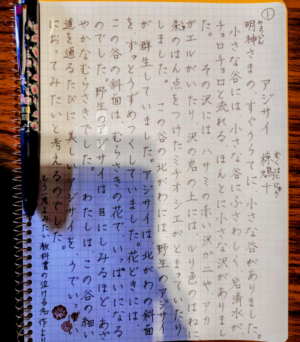 ①
アジサイ
椋鳩十
明神さまの、すぐうらてに、小さな谷がありました。
小さな谷には、小さな谷にふさわしく、岩清水が
チョロチョロと流れる、ほんとに小さな沢がありまし
た。その沢には、ハサミの赤い沢ガニや、アカ
ガエルがいたり、沢の岩の上には、ルリ色のはねに
はん点をつけたミチオシエがとまっていたり
しました。この谷の北がわには、野生のアジサイ
が群生していました。アジサイは、北がわの斜面
を、ずっとうずめつくしていました。花どきには、
この谷の斜面は、むらさきの花で、いっぱいになる
のでした。野生のアジサイは、目にしみるほど、あざ
やかなむらさきでした。わたしは、この谷の細い
道を通るたびに、美し ジサイを、うでいっ
におってみたいと考えるのでした。
教科書の泣ける名作より